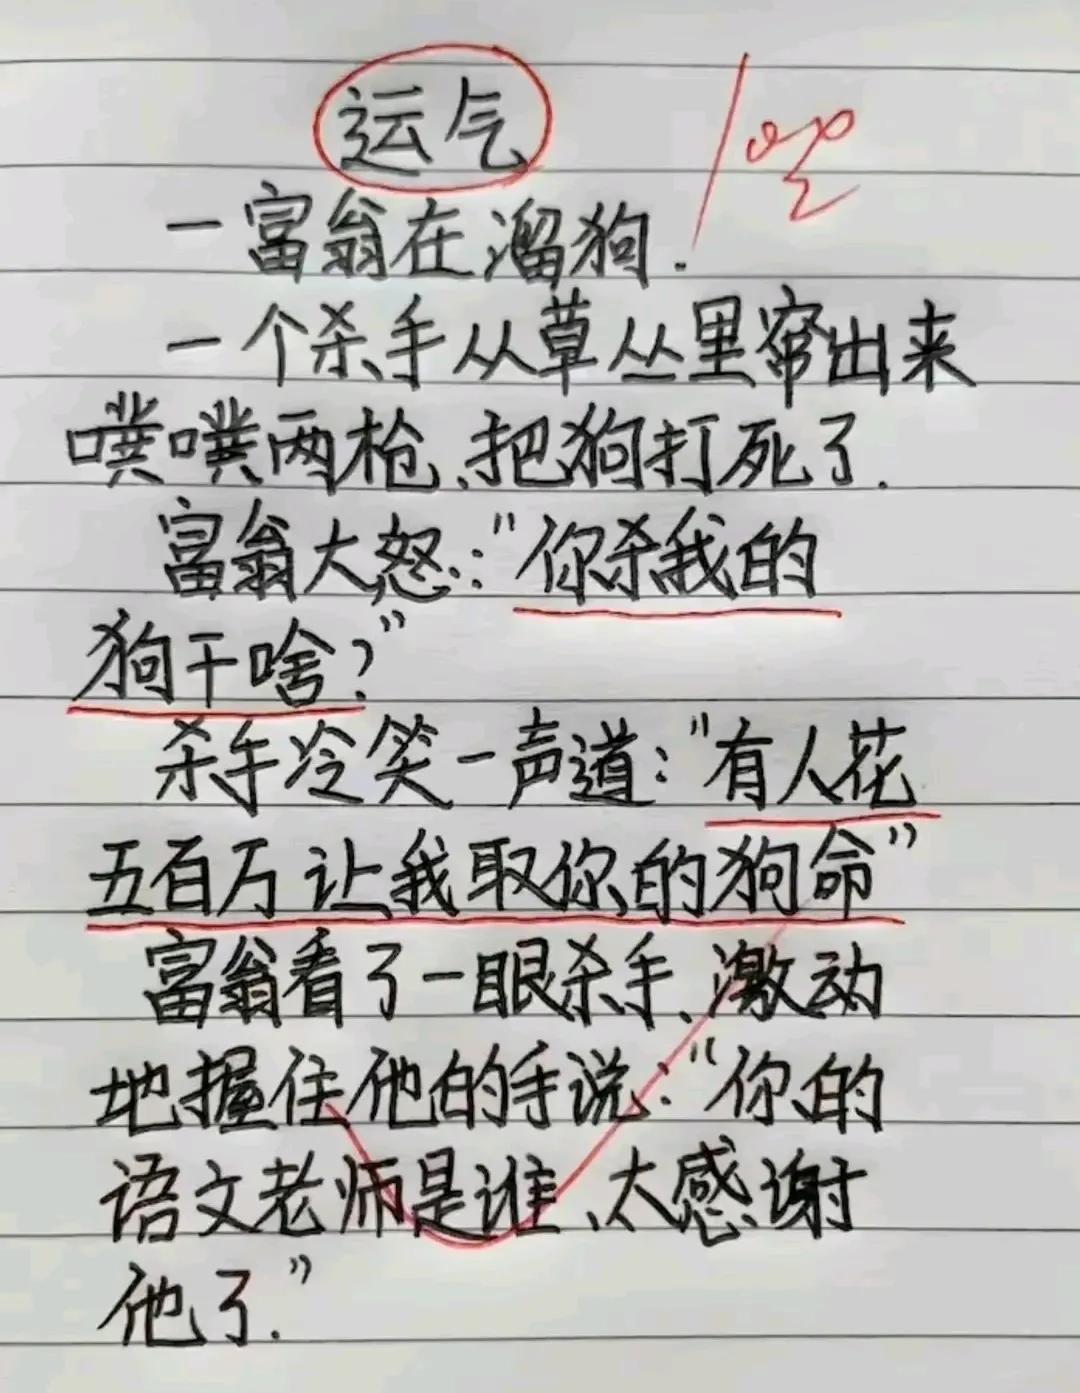 运气
100
一富翁在溜狗.
一个杀手从草丛里窜出来
噗噗两枪、把狗打死了.
富翁大怒:"你杀我的
狗干啥?"
杀手冷笑一声道:"有人花
五百万让我取你的狗命"
富翁看了一眼杀手、激动
地握住他的手说:"你的
语文老师是谁、太感谢
他了."